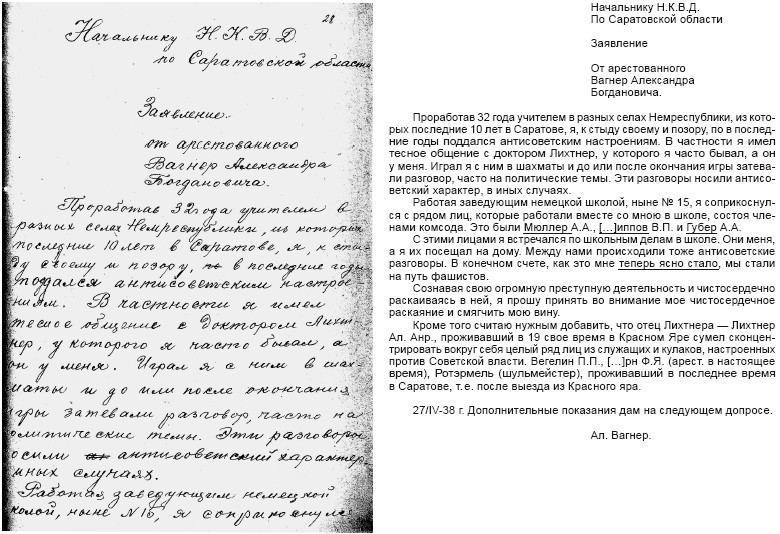 28
Начальнику Н. К. В. Д.
по Саратовской области
Заявление.
от арестованного
Вагнер Александра
Богдановича.
Проработав 32 года учителем в
разных селах Немреспублики, из которых
последние 10 лет в Саратове, я, к сты-
ду своему и позору, по в последние годы
поддался антисоветским настрое-
ниям. В частности я имел
тесное общение с доктором Лихт-
нер, у которого я часто бывал, а
он у меня. Играл я с ним в шах-
маты и до или после окончания
игры затевали разговор, часто на
политические темы. Эти разговоры
носили антисоветский характер,
иных случаях.
Работая заведующим немецкой
школой, ныне № 15, я соприкоснулс
Начальнику Н.К.В.Д.
По Саратовской области
Заявление
От арестованного
Вагнер Александра
Богдановича.
Проработав 32 года учителем в разных селах Немреспублики, из кото-
рых последние 10 лет в Саратове, я, к стыду своему и позору, по в послед-
ние годы поддался антисоветским настроениям. В частности я имел
тесное общение с доктором Лихтнер, у которого я часто бывал, а он
у меня. Играл я с ним в шахматы и до или после окончания игры затева-
ли разговор, часто на политические темы. Эти разговоры носили антисо-
ветский характер, в иных случаях.
Работая заведующим немецкой школой, ныне № 15, я соприкоснул-
ся с рядом лиц, которые работали вместе со мною в школе, состоя чле-
нами комсода. Это были Мюллер А.А., [...]иппов В.П. и Губер А.А.
С этими лицами я встречался по школьным делам в школе. Они меня,
а я их посещал на дому. Между нами происходили тоже антисоветские
разговоры. В конечном счете, как это мне теперь ясно стало, мы стали
на путь фашистов.
Сознавая свою огромную преступную деятельность и чистосердечно
раскаиваясь в ней, я прошу принять во внимание мое чистосердечное
раскаяние и смягчить мою вину.
Кроме того считаю нужным добавить, что отец Лихтнера — Лихтнер
Ал. Анр., проживавший в 19 свое время в Красном Яре сумел сконцен-
трировать вокруг себя целый ряд лиц из служащих и кулаков, настроенных
против Советской власти. Вегелин П.П., [...]рн Ф.Я. (арест. в настоящее
время), Ротэрмель (шульмейстер), проживавший в последнее время
в Саратове, т.е. после выезда из Красного яра.
27/IV-38 г. Дополнительные показания дам на следующем допросе.
Ал. Вагнер.